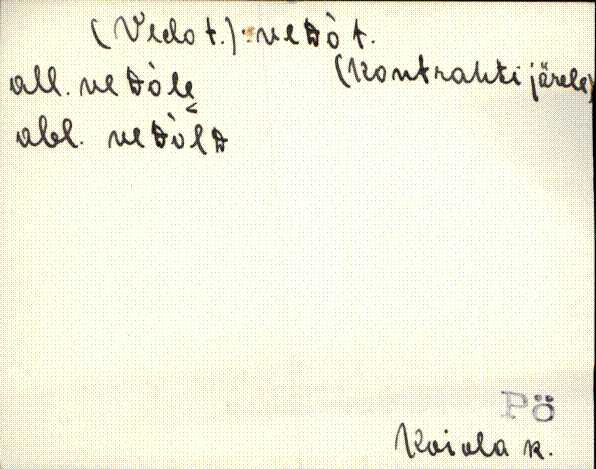 (Vedo t.) veᴅò t.
(Kontrakti järele)
all. veᴅòle
abl. veᴅòlᴅ
Pö
Koiola k.